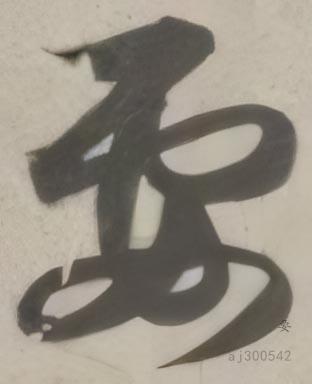 娶
娶
aj300542